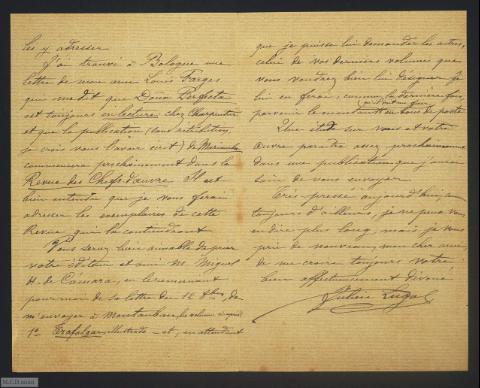 les y adresser.
J'ai trouvé à Bologne une
lettre de mon ami Louis Farges
qui me dit que Doña Perfecta
est toujours en lecture chez Charpentier
et que la publication
je crois vous l'avoir écrit) de Marianela
commencera prochainement dans la
Revue des Chefs-d'œuvre. Il est
bien entendu que je vous ferai
adresser les exemplaires de cette
Revue qui la contiendront.
Vous seriez bien aimable de prier
votre éditeur et ami M. Miguel
H. de Cámara, en le remerciant
pour moi de sa lettre du 12, de
m'envoyer à Montauban, le volume
1º Trafalgar, illustrado - et, en attendant
que je puisse lui demander les autres,
celui de vos derniers volumes que
vous voudrez bien lui désigner. Je
lui en ferai, comme la dernière fois,
parvenir le montant en bons de poste
Une étude sur vous et votre
œuvre paraîtra assez prochainement
dans une publication que j'aurai
soin de vous envoyer.
Très pressé aujourd'hui, comme
toujours d'ailleurs, je ne puis vous
en dire plus long, mais je vous
prie de nouveau, mon cher ami,
de me croire toujours votre
bien affectueusement dévoué
Julien Lugol
M.C.D. 2022